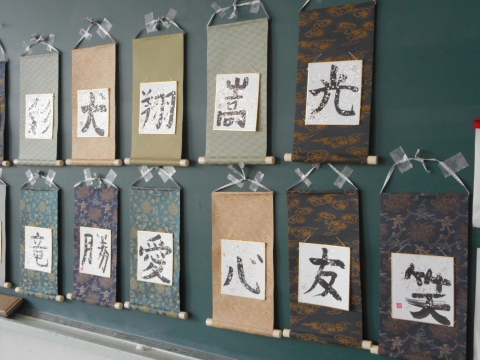 彩
犬
翔
嵩
光
竜
勝
愛
心
友
笑